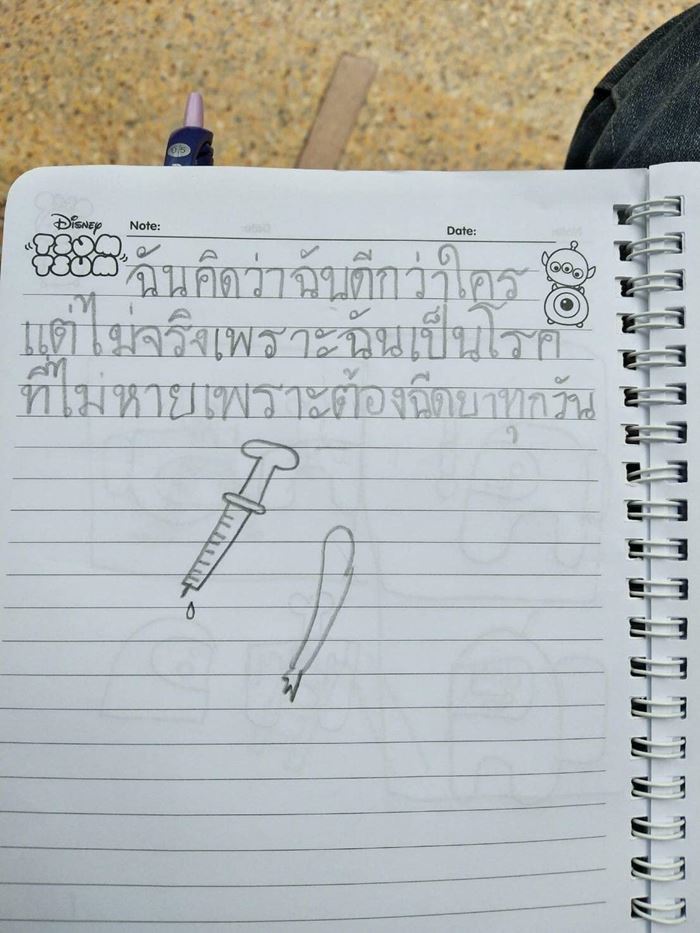 0.5
Disney
TSUM TSUM
Note:
Date:
ฉันคิดว่าฉันดีกว่าใคร
แต่ไม่จริงเพราะฉันเป็นโรค
ที่ไม่หายเพราะต้องฉีดยาทุกวัน